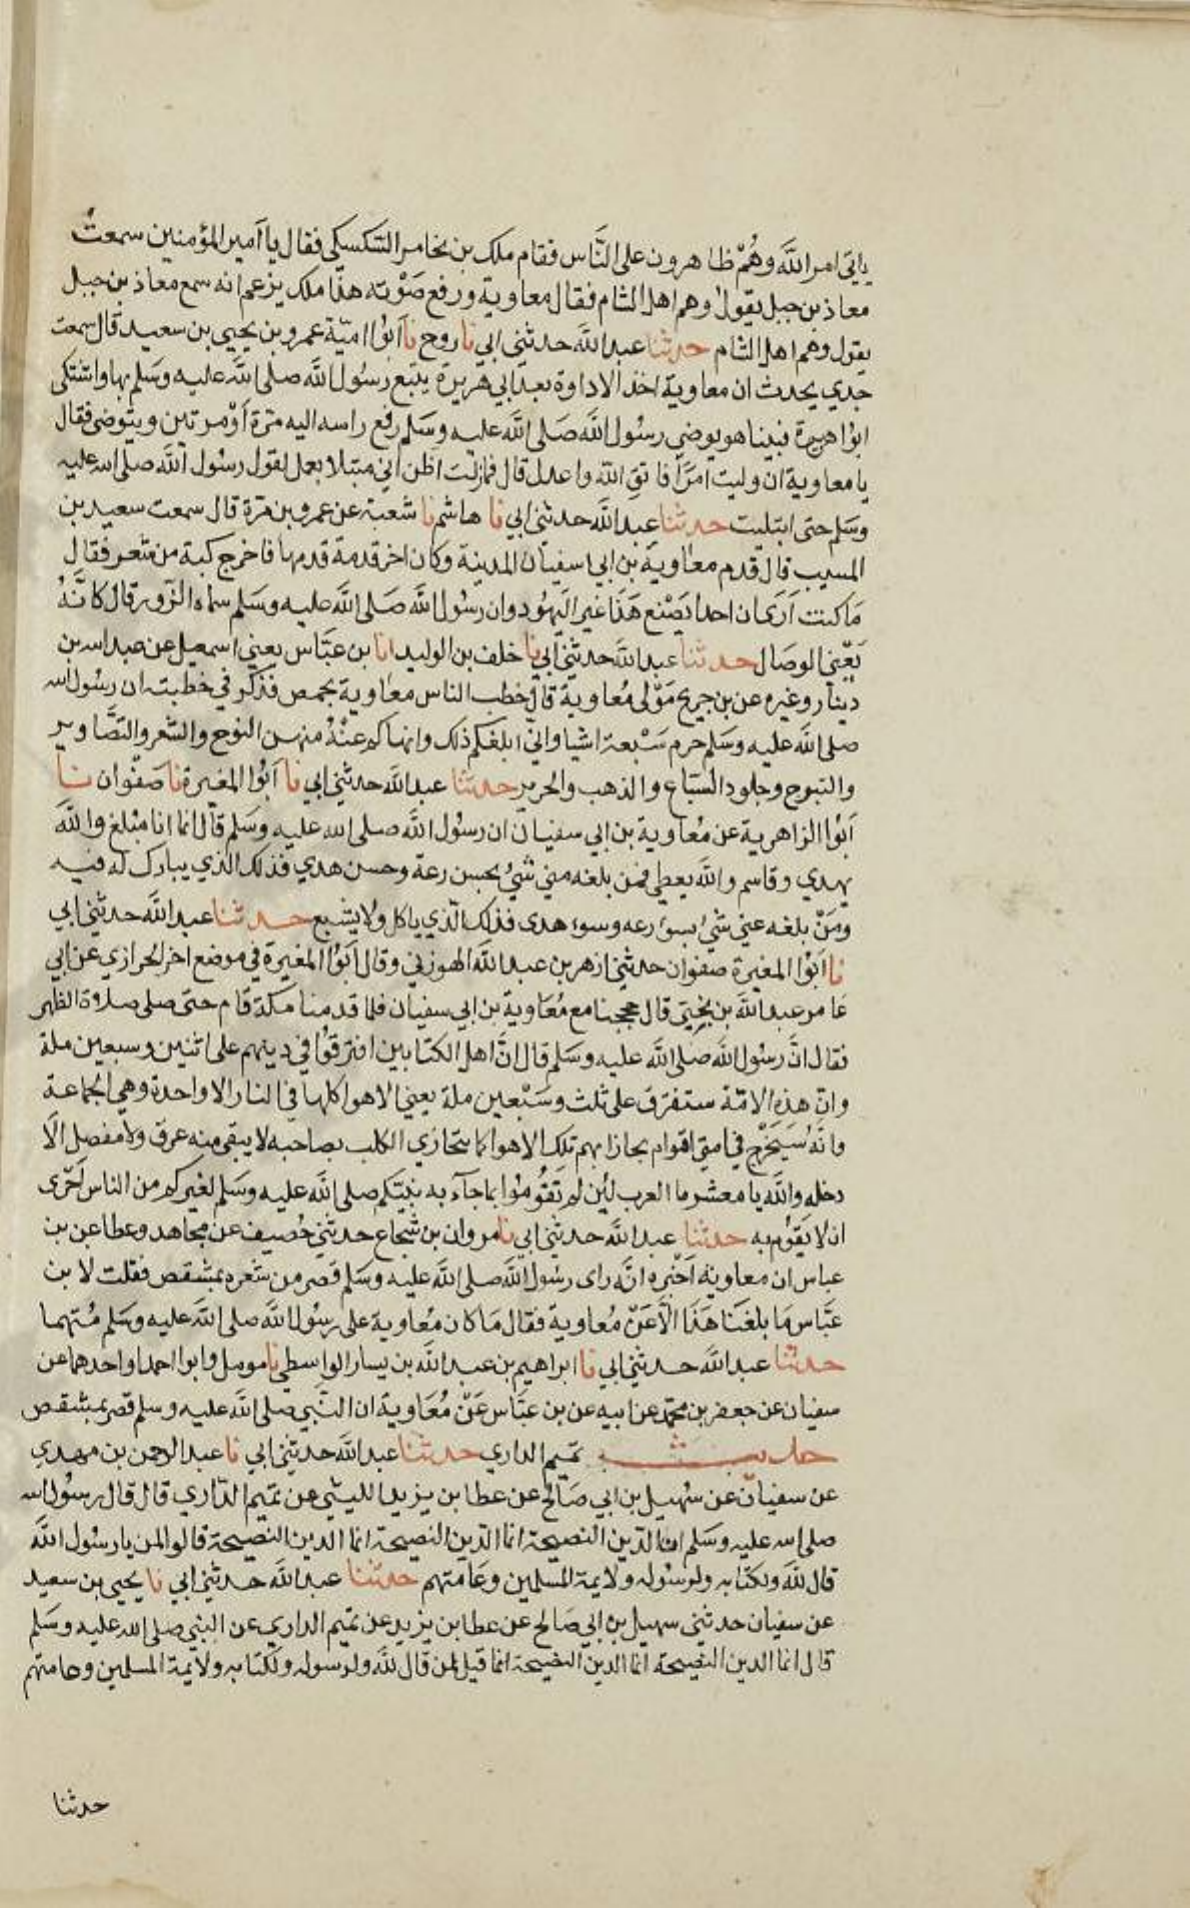 ياتي امر الله وهم ظاهرون على الناس فقام ملك بن يخامر السكسكي فقال يا امير المؤمنين سمعت
معاذ بن جبل يقول وهم اهل الشام فقال معاوية ورفع صوته هذا ملك يزعم انه سمع معاذ بن جبل
يقول وهم اهل الشام حدثنا عبد الله حدثني ابي نا روح نا ابوا امية عمرو بن يحيى بن سعيد قال سمعت
جدي يحدث ان معاوية اخذ الاداوة بعد ابي هريرة يتبع رسول الله صلى الله عليه وسلم بها واشتكى
ابوا هريرة فبينا هو يوضي رسول الله صلى الله عليه وسلم رفع راسه اليه مرة او مرتين وهو يتوضى فقال
يا معاوية ان وليت امرا فاتق الله واعدل قال فما زلت اظن اني مبتلا بعمل لقول رسول الله صلى الله عليه
وسلم حتى ابتليت حدثنا عبد الله حدثني ابي نا هاشم نا شعبة عن عمرو بن مرة قال سمعت سعيد بن
المسيب قال قدم معاوية بن ابي سفيان المدينة وكان اخر قدمة قدمها فاخرج كبة من شعر فقال
ما كنت ارى ان احدا يصنع هذا غير اليهود وان رسول الله صلى الله عليه وسلم سماه الزور قال كانه
يعني الوصال حدثنا عبد الله حدثني ابي نا خلف بن الوليد انا بن عباس يعني اسمعيل عن عبد الله بن
دينار وغيره عن بن جريج مولى معاوية قال خطب الناس معاوية بحمص فذكر في خطبته ان رسول الله
صلى الله عليه وسلم حرم سبعة اشيا واني ابلغكم ذلك وانهاكم عنه منهن النوح والشعر والتصاوير
والتبرج وجلود السباع والذهب والحرير حدثنا عبد الله حدثني ابي نا ابوا المغيرة نا صفوان نا
ابوا الزاهرية عن معاوية بن ابي سفيان ان رسول الله صلى الله عليه وسلم قال انما انا مبلغ والله
يهدي وقاسم والله يعطي فمن بلغه مني شي بحسن رعة وحسن هدي فذلك الذي يبارك له فيه
ومن بلغه عني شي بسو رعه وسوء هدى فذلك الذي ياكل ولا يشبع حدثنا عبد الله حدثني ابي
نا ابوا المغيرة صفوان حدثني ازهر بن عبد الله الهوزني وقال ابوا المغيرة في موضع اخر الحرازي عن ابي
عامر عبد الله بن يحيى قال حججنا مع معاوية بن ابي سفيان فلما قدمنا مكة قام حتى صلى صلاة الظهر
فقال ان رسول الله صلى الله عليه وسلم قال ان اهل الكتابين افترقوا في دينهم على اثنين وسبعين ملة
وان هذه الامة ستفترق على ثلث وسبعين ملة يعني الاهوا كلها في النار الا واحدة وهي الجماعة
وانه سيخرج في امتي اقوام تجازا بهم تلك الاهوا كما يتجازى الكلب بصاحبه لا يبقى منه عرق ولا مفصل الا
دخله والله يا معشر ما العرب لئن لم تقوموا بما جاء به نبيكم صلى الله عليه وسلم لغيركم من الناس احرى
ان لا يقوم به حدثنا عبد الله حدثني ابي نا مروان بن شجاع حدثني خصيف عن مجاهد وعطا عن بن
عباس ان معاوية اخبره انه راى رسول الله صلى الله عليه وسلم قصر من شعره بمشقص فقلت لابن
عباس ما بلغنا هذا الا عن معاوية فقال ما كان معاوية على رسول الله صلى الله عليه وسلم متهما
حدثنا عبد الله حدثني ابي نا ابراهيم بن عبد الله بن يسار الواسطي نا مومل وابوا احمد او احدهما عن
سفيان عن جعفر بن محمد عن ابيه عن بن عباس عن معاوية ان النبي صلى الله عليه وسلم قصر بمشقص
حديث تميم الداري حدثنا عبد الله حدثني ابي نا عبد الرحمن بن مهدي
عن سفيان عن سهيل بن ابي صالح عن عطا بن يزيد الليثي عن تميم الداري قال قال رسول الله
صلى الله عليه وسلم انما الدين النصيحة انما الدين النصيحة انما الدين النصيحة قالوا لمن يا رسول الله
قال لله ولكتابه ولرسوله ولايمة المسلمين وعامتهم حدثنا عبد الله حدثني ابي نا يحيى بن سعيد
عن سفيان حدثني سهيل بن ابي صالح عن عطا بن يزيد عن تميم الداري عن النبي صلى الله عليه وسلم
قال انما الدين النصيحة انما الدين النصيحة انما قيل لمن قال لله ولرسوله ولكتابه ولايمة المسلمين وعامتهم
حدثنا